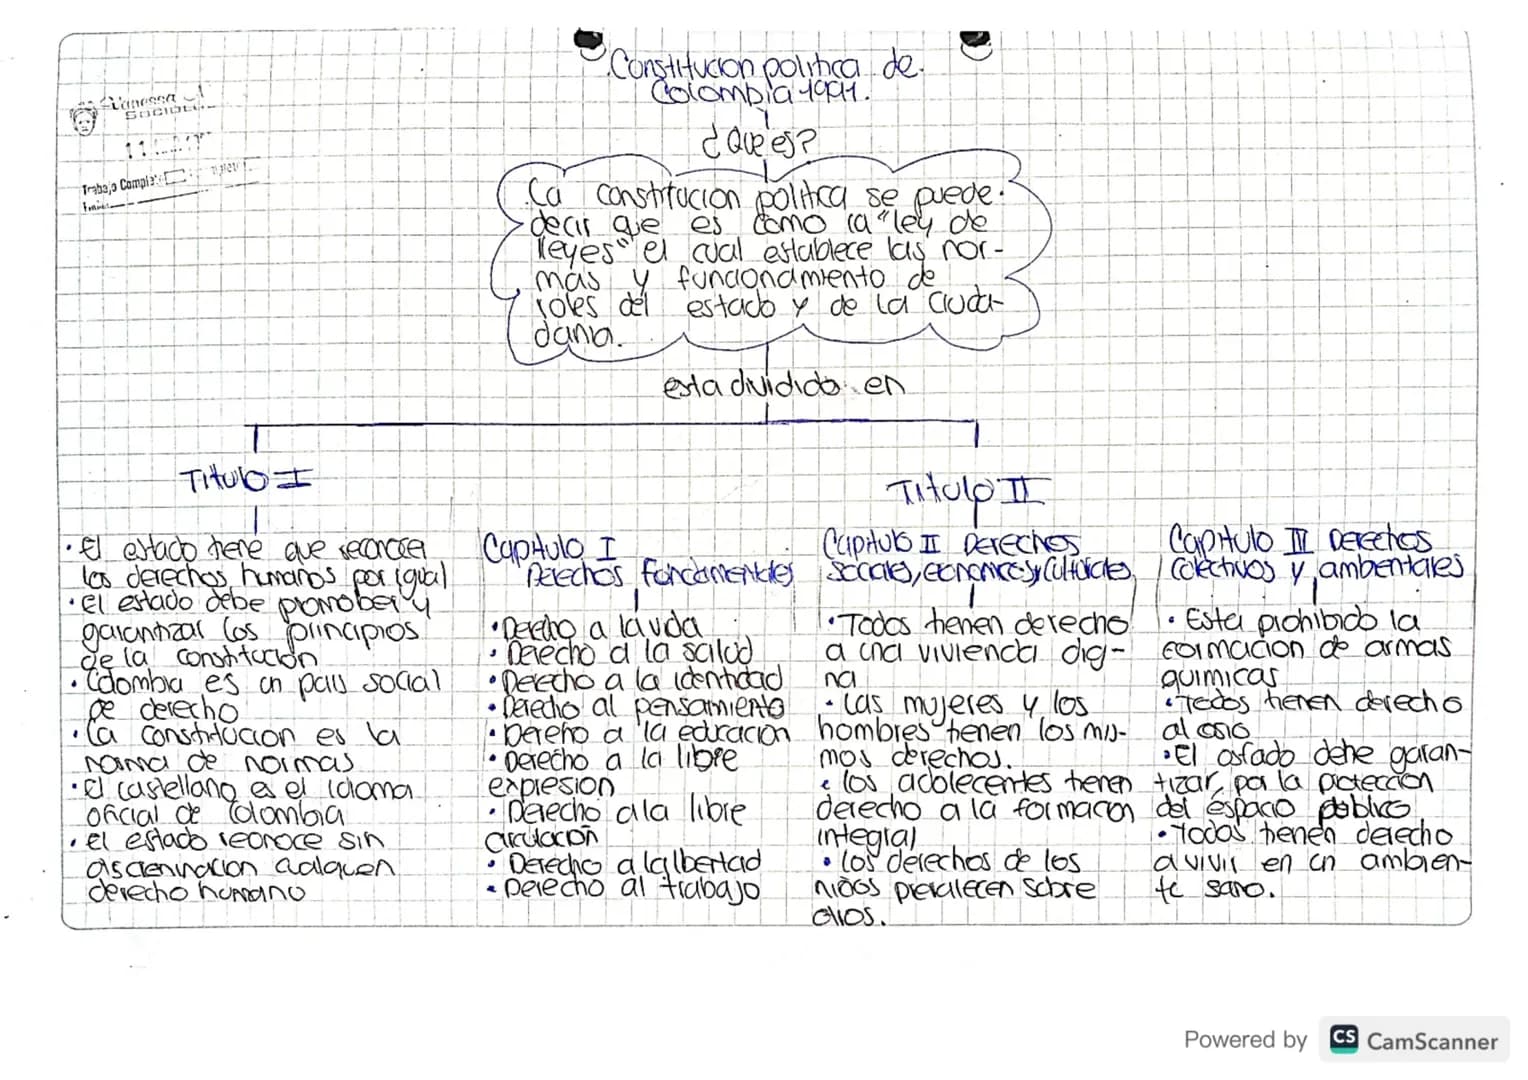 Constitucion politica de
Colombia 1991.
¿Que es?
La constitucion politica se puede
decir que es como la "ley de
leyes" el cual establece las nor-
mas y funcionamiento de
roles del estado y de la ciuda-
dania.
esta dividido en
Titulo I
• El estado tiene que reconocer
los derechos humanos por igual
• el estado debe promober y
garantizar los principios
de la constitución
• Colombia es un pais social
de derecho
• La constitucion es la
norma de normas
• El castellano es el idioma
oficial de Colombia
• el estado reconoce sin
derecho humano
Titulo II
Capitulo I
Derechos fundamentales
• Derecho a la vida
• Derecho a la salud
• Derecho a la identidad
• Derecho al pensamiento
• Derecho a la educacion
• Derecho a la libre
expresion
• Derecho a la libre
circulación
• Derecho a la libertad
• Derecho al trabajo
Capitulo II Derechos
sociales, economicos y culturales
• Todos tienen derecho
a una vivienda dig-
na
• Las mujeres y los
hombres tienen los mis-
mos derechos.
• los adolecentes tienen
derecho a la formacion
integral
• los derechos de los
niños prevalecen sobre
otros.
Capitulo III Derechos
colectivos y ambientales
• Esta prohibido la
formacion de armas
quimicas
• Todos tienen derecho
al osio
• El estado debe garan-
tizar, por la protección
del espacio publico
• Todos tienen derecho
a vivir en un ambien-
te sano.
Vanessa
Trabajo
Powered by CS CamScanner